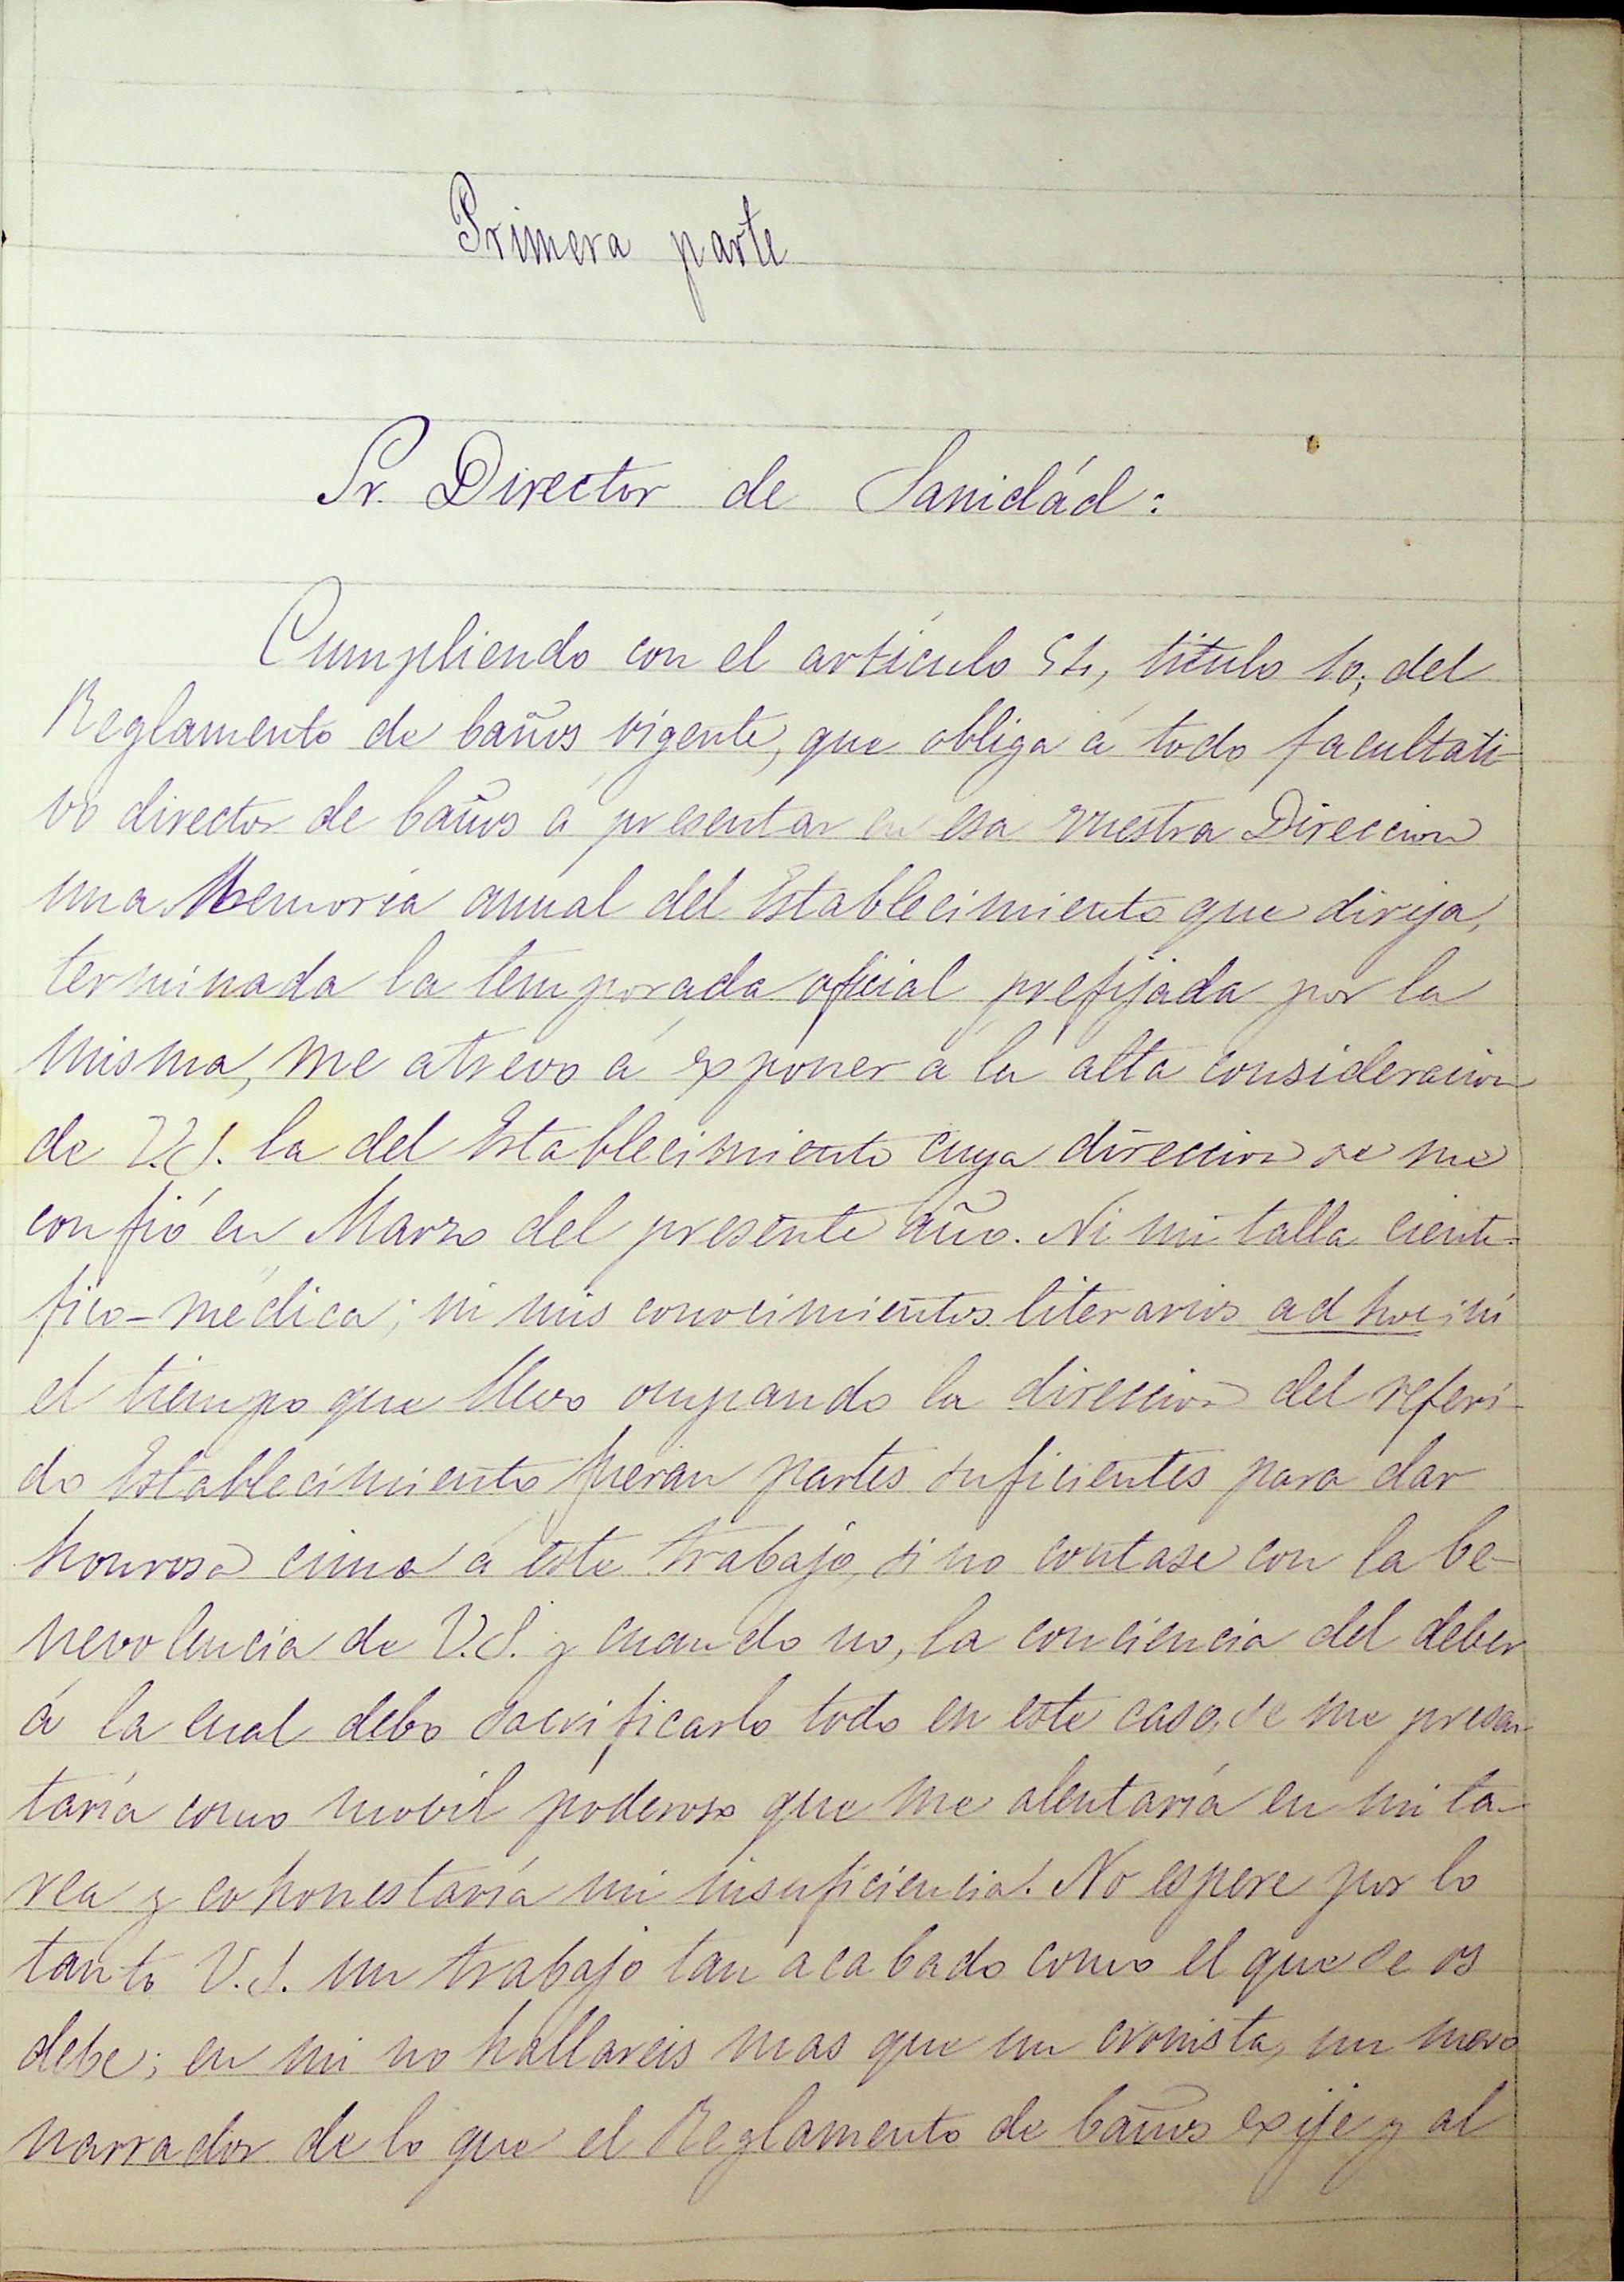 Primera parte
Sr. Director de Sanidád:
Cumpliendo con el artículo 54, título 10, del
Reglamento de baños vigente, que obliga á todo facultati-
vo director de baños á presentar en esa vuestra Direccion
una Memoria anual del Establecimiento que dirija,
terminada la temporada oficial prefijada por la
misma, me atrevo á exponer á la alta consideracion
de V.S. la del Establecimiento cuya direccion se me
confió en Marzo del presente año. Ni mi talla cientí-
fico-médica; ni mis conocimientos literarios ad hoc; ni
el tiempo que llevo ocupando la direccion del referi-
do Establecimiento fueran partes suficientes para dar
honrosa cima á este trabajo, si no contase con la be-
nevolencia de V.S. y cuando no, la conciencia del deber
á la cual debo sacrificarlo todo en este caso, se me presen-
taría como mobil poderoso que me alentaría en mi ta-
rea y cohonestaría mi insuficiencia. No espere por lo
tanto V.S. un trabajo tan acabado como el que se os
debe; en mi no hallareis mas que un cronista, un mero
narrador de lo que el Reglamento de baños exije y al